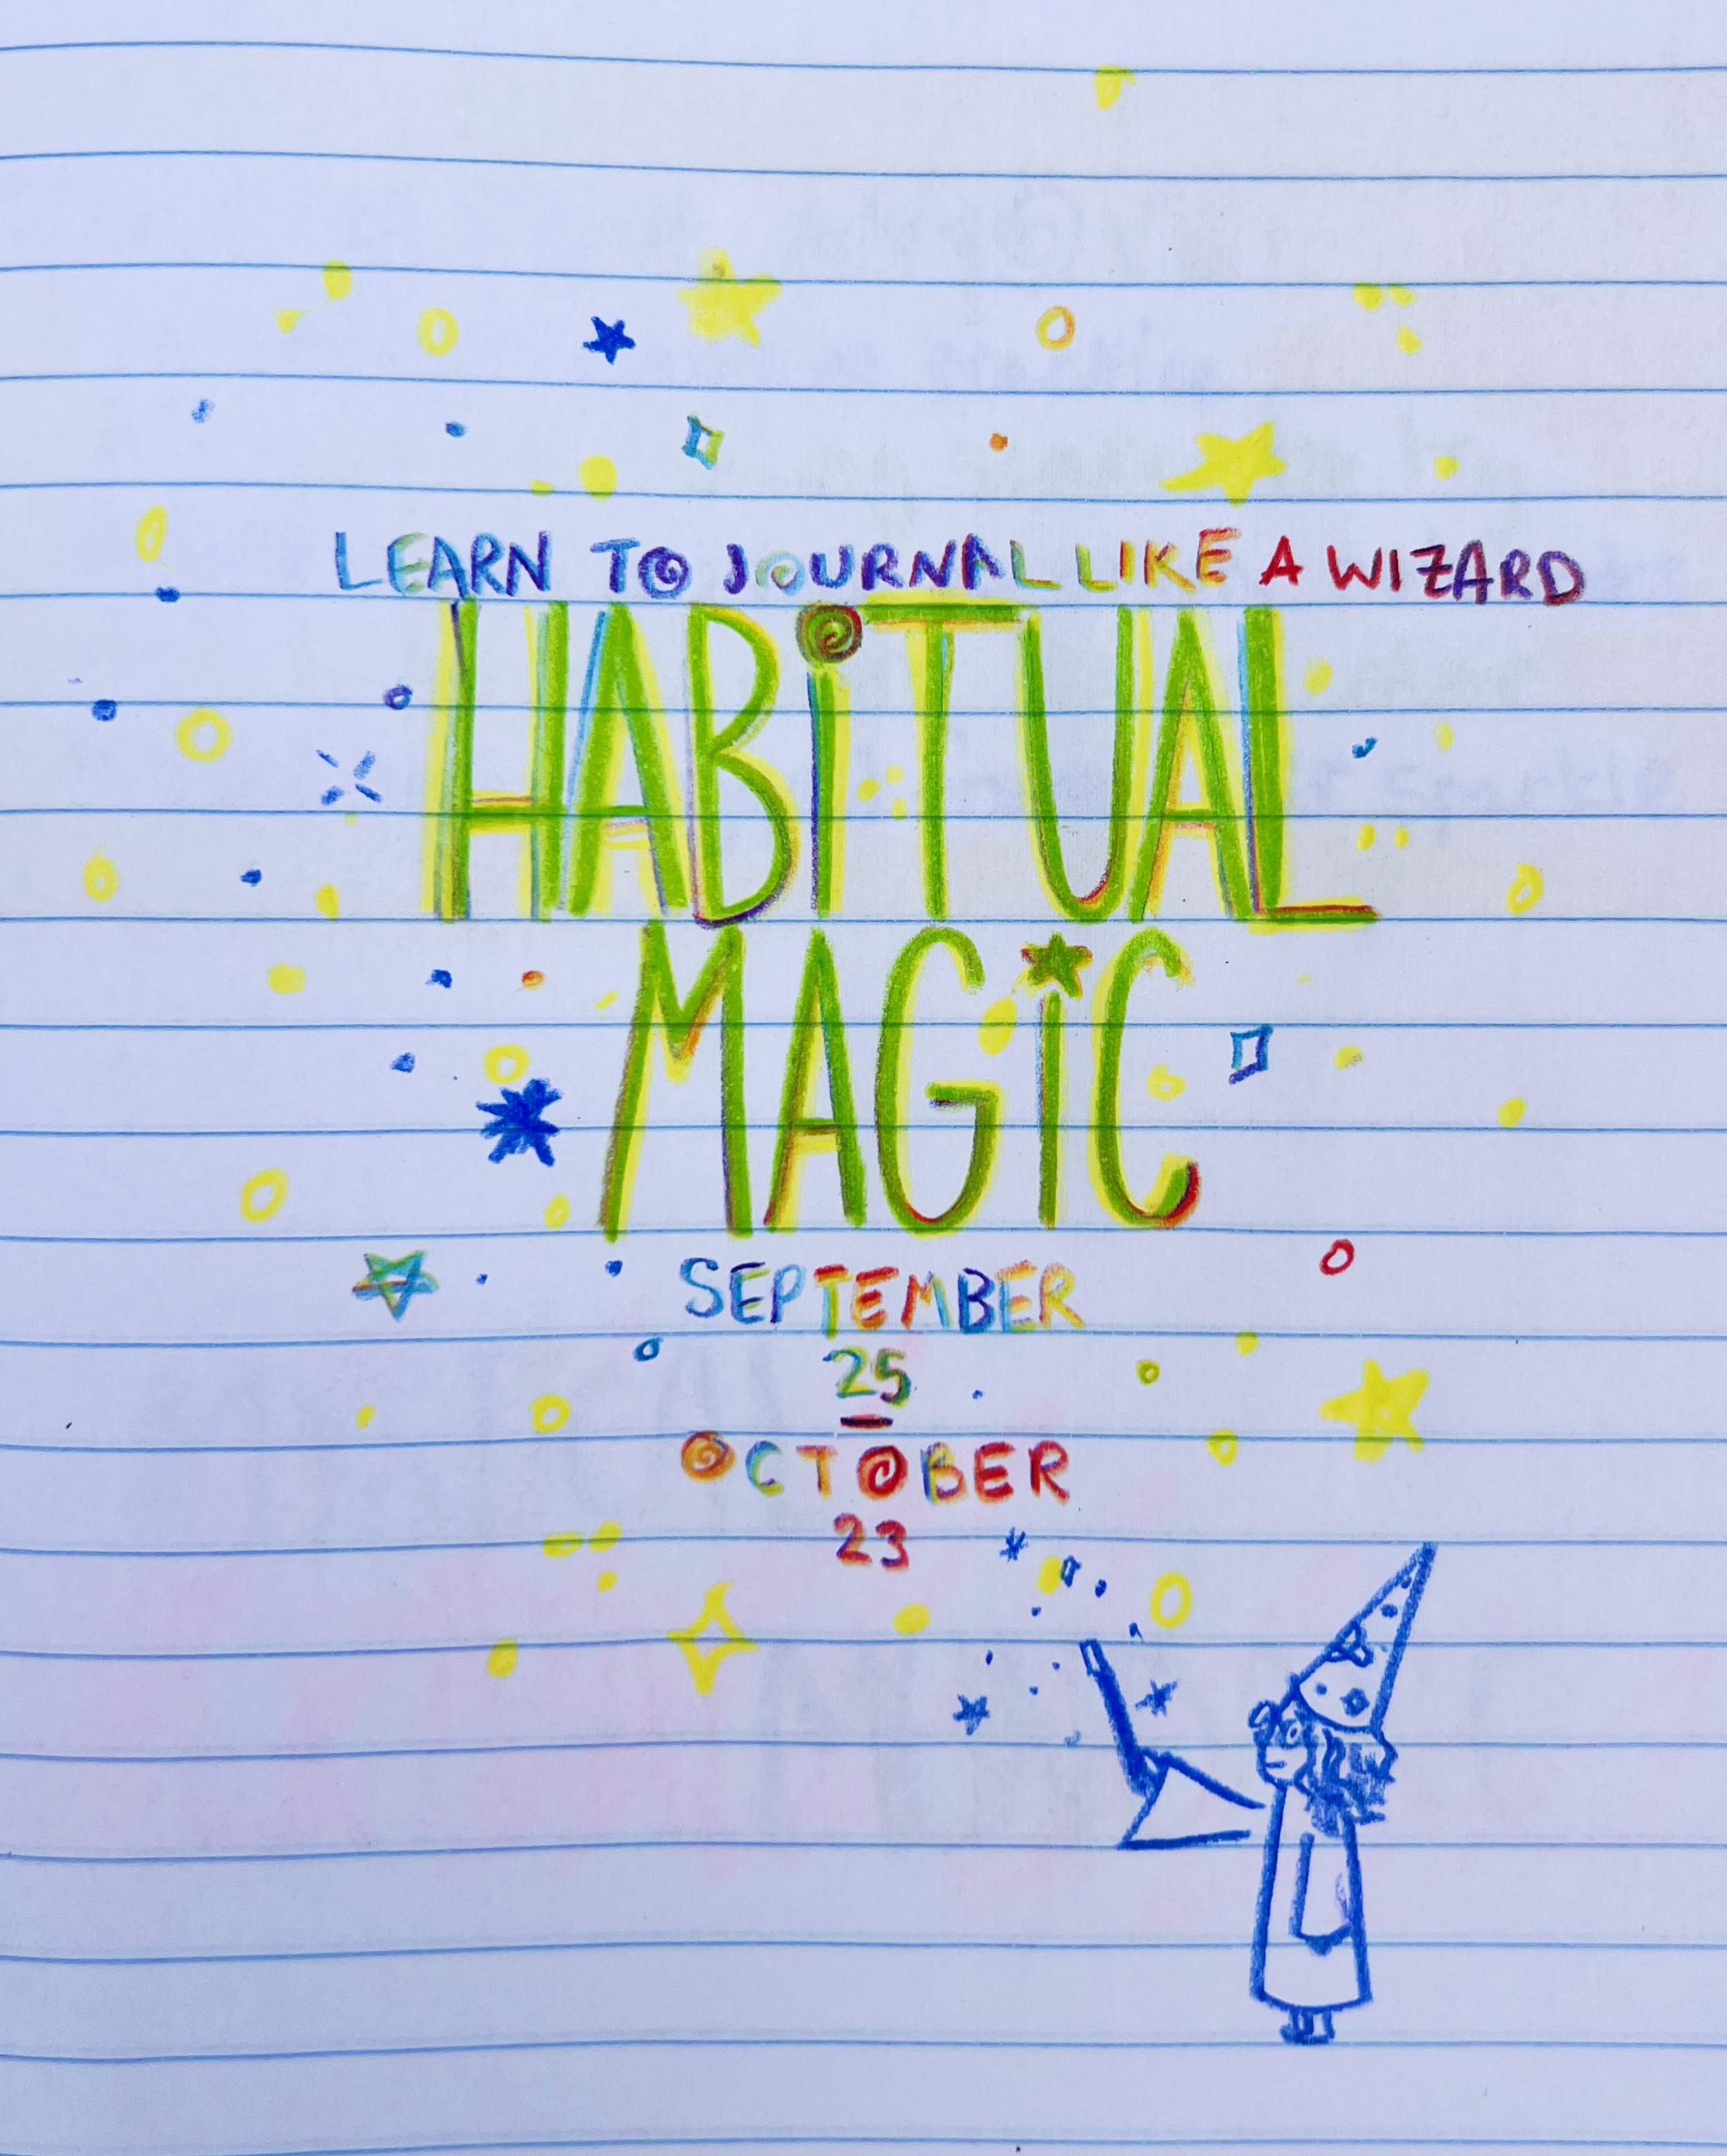 LEARN TO JOURNAL LIKE A WIZARD
HABiTUAL
MAGiC
SEPTEMBER
25
–
OCTOBER
23